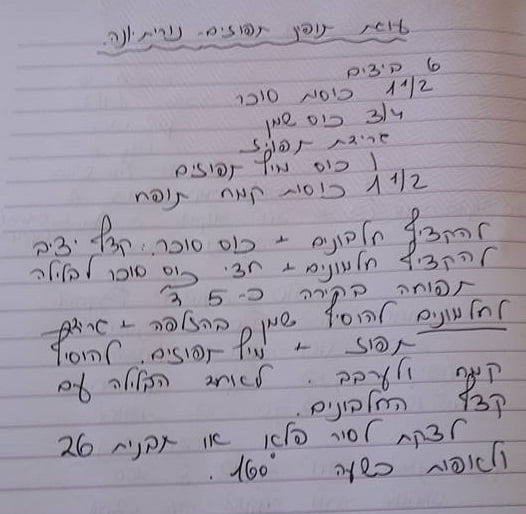 עוגת תופין תפוזים. נורית יונה.
6 ביצים
1 1/2 כוסות סוכר
3/4 כוס שמן
גרידת תפוז
1 כוס מיץ תפוזים
1 1/2 כוסות קמח תופח
להקציף חלבונים + כוס סוכר: קצף יציב
להקציף חלמונים + חצי כוס סוכר לבלילה
תפוחה בהירה כ- 5 ד'
לחלמונים להוסיף שמן בהזלפה + גרידת
תפוז + מיץ תפוזים. להוסיף
קמח ולערבב. לאחד הבלילה עם
קצף החלבונים.
לצקת לסיר פלא או תבנית 26
ולאפות כשעה 160°.